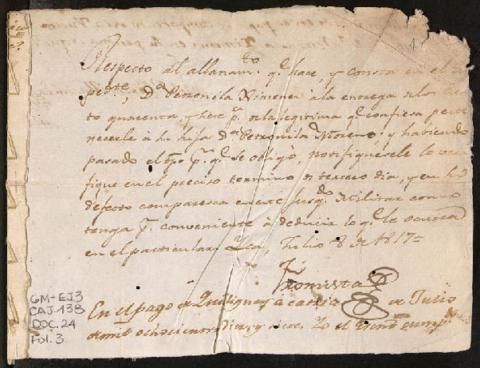 Respecto al allanam.to q.e hace, y consta en el
ped.te, D.a Petronila Ximenes à la entrega de los
to quarenta y siete p.s de la legitima q.e confiesa perte
necerle à su hija D.a Moreno, y habiendo
pasado el tpo p.r q.e se obligò, notifiquesele lo veri
fique en el preciso termino de tercero dia, y en su
defecto comparesca en este Jusg.do Militar como
tenga p.r conveniente à deducir lo q.e le ocurra
en el particular. Ica, Julio 8 de 1817=
En el pago de à de Julio
de mil ochocientos dies, y siete. Yo el
GM-EJ3
CAJ.138
DOC.24
Fol. 3